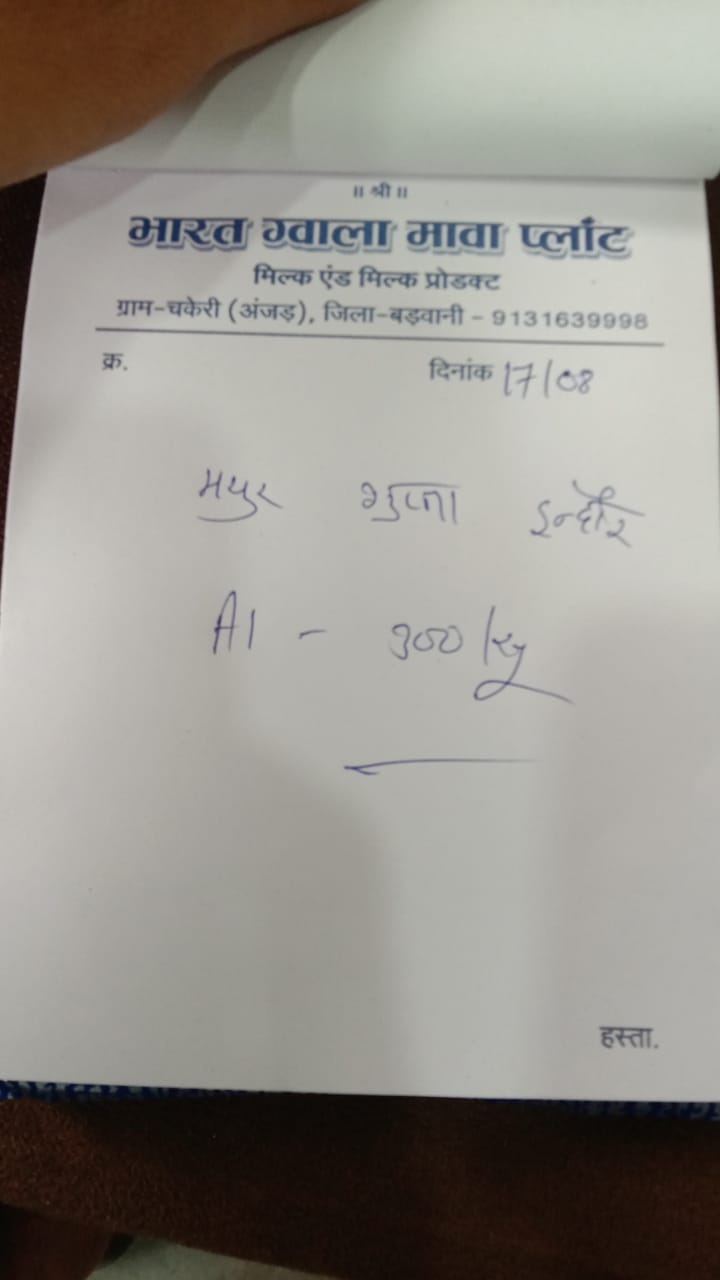 ॥ श्री ॥
भारत ग्वाला मावा प्लांट
मिल्क एंड मिल्क प्रोडक्ट
ग्राम-चकेरी (अंजड़), जिला-बड़वानी - 9131639998
क्र. दिनांक 17/08
मयुर इन्दौर
A1 - 300 kg
हस्ता.